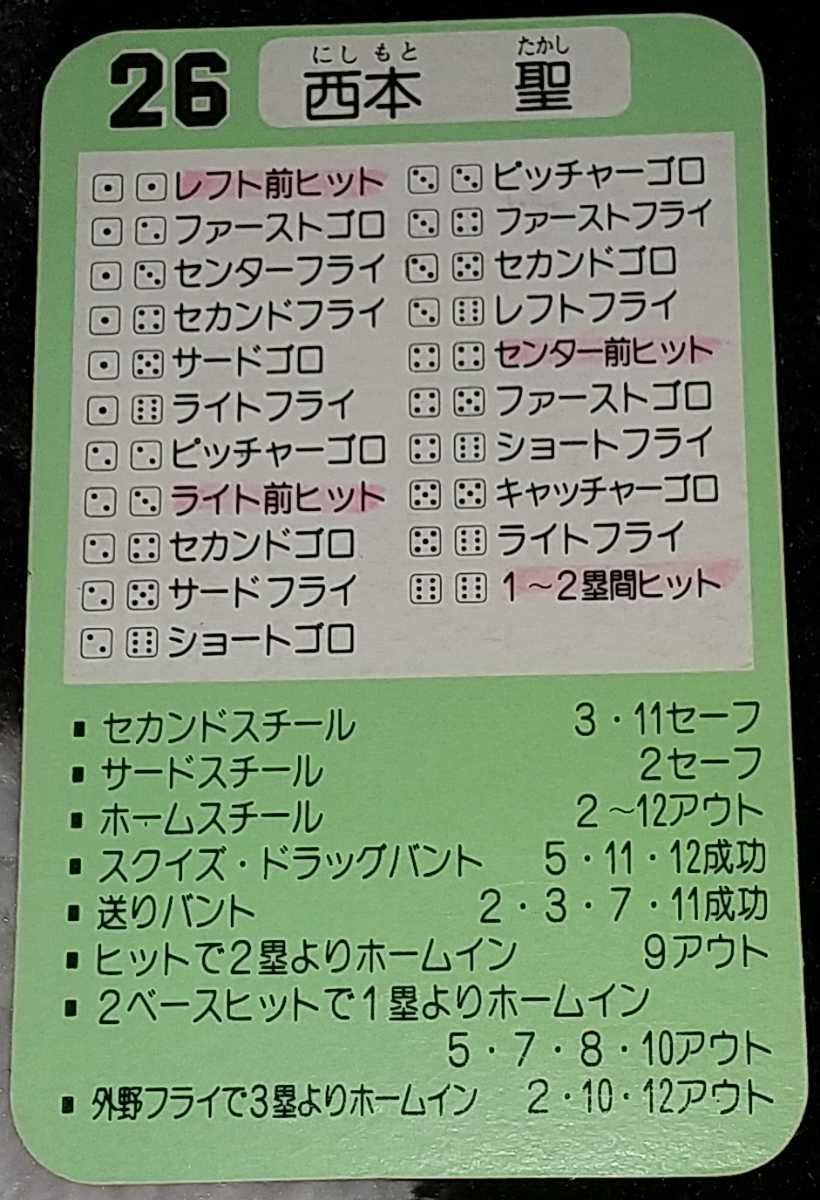 26
にしもと たかし
西本 聖
⚀ ⚀ レフト前ヒット
⚀ ⚁ ファーストゴロ
⚀ ⚂ センターフライ
⚀ ⚃ セカンドフライ
⚀ ⚄ サードゴロ
⚀ ⚅ ライトフライ
⚁ ⚁ ピッチャーゴロ
⚁ ⚂ ライト前ヒット
⚁ ⚃ セカンドゴロ
⚁ ⚄ サードフライ
⚁ ⚅ ショートゴロ
⚂ ⚂ ピッチャーゴロ
⚂ ⚃ ファーストフライ
⚂ ⚄ セカンドゴロ
⚂ ⚅ レフトフライ
⚃ ⚃ センター前ヒット
⚃ ⚄ ファーストゴロ
⚃ ⚅ ショートフライ
⚄ ⚄ キャッチャーゴロ
⚄ ⚅ ライトフライ
⚅ ⚅ 1~2塁間ヒット
■ セカンドスチール 3・11セーフ
■ サードスチール 2セーフ
■ ホームスチール 2~12アウト
■ スクイズ・ドラッグバント 5・11・12成功
■ 送りバント 2・3・7・11成功
■ ヒットで2塁よりホームイン 9アウト
■ 2ベースヒットで1塁よりホームイン
5・7・8・10アウト
■ 外野フライで3塁よりホームイン 2・10・12アウト